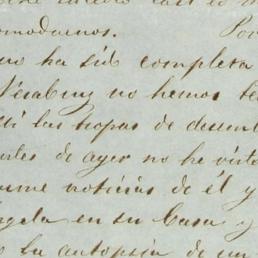 comodarnos. Por
no ha sido completa
Verabruz no hemos te
las tropas de desem
antes de ayer no he visto
noticias de él y
ngela en su Casa y
la autopsia de un